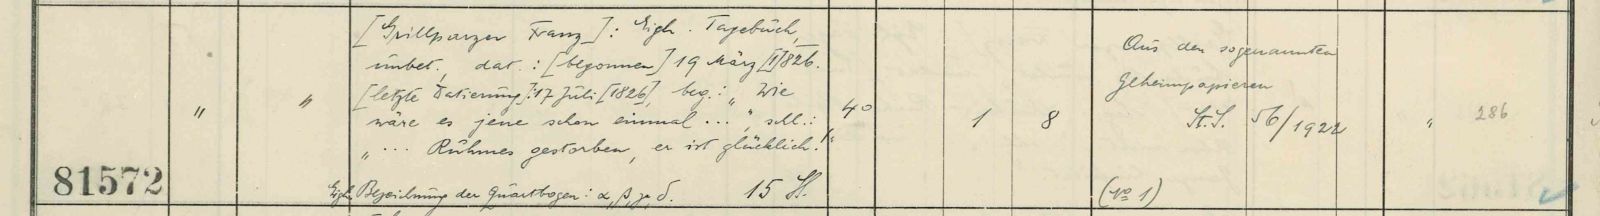 [Grillparzer Franz]: Eigh. Tagebuch,
unbet., dat.: [begonnen] 19 März [1]826.
[letzte Datierung]: 17 Juli [1826], beg.: „Wie
wäre es jene schon einmal ...", schl.:
„... Ruhmes gestorben, er ist glücklich!"
Eigh. Bezeichnung der Quartbogen: α, β, γ, δ. 15 Bl.
81572
"
"
4°
1
8
Aus den sogenannten
Geheimpapieren
St. S. 56/1922
(No 1)
"
286